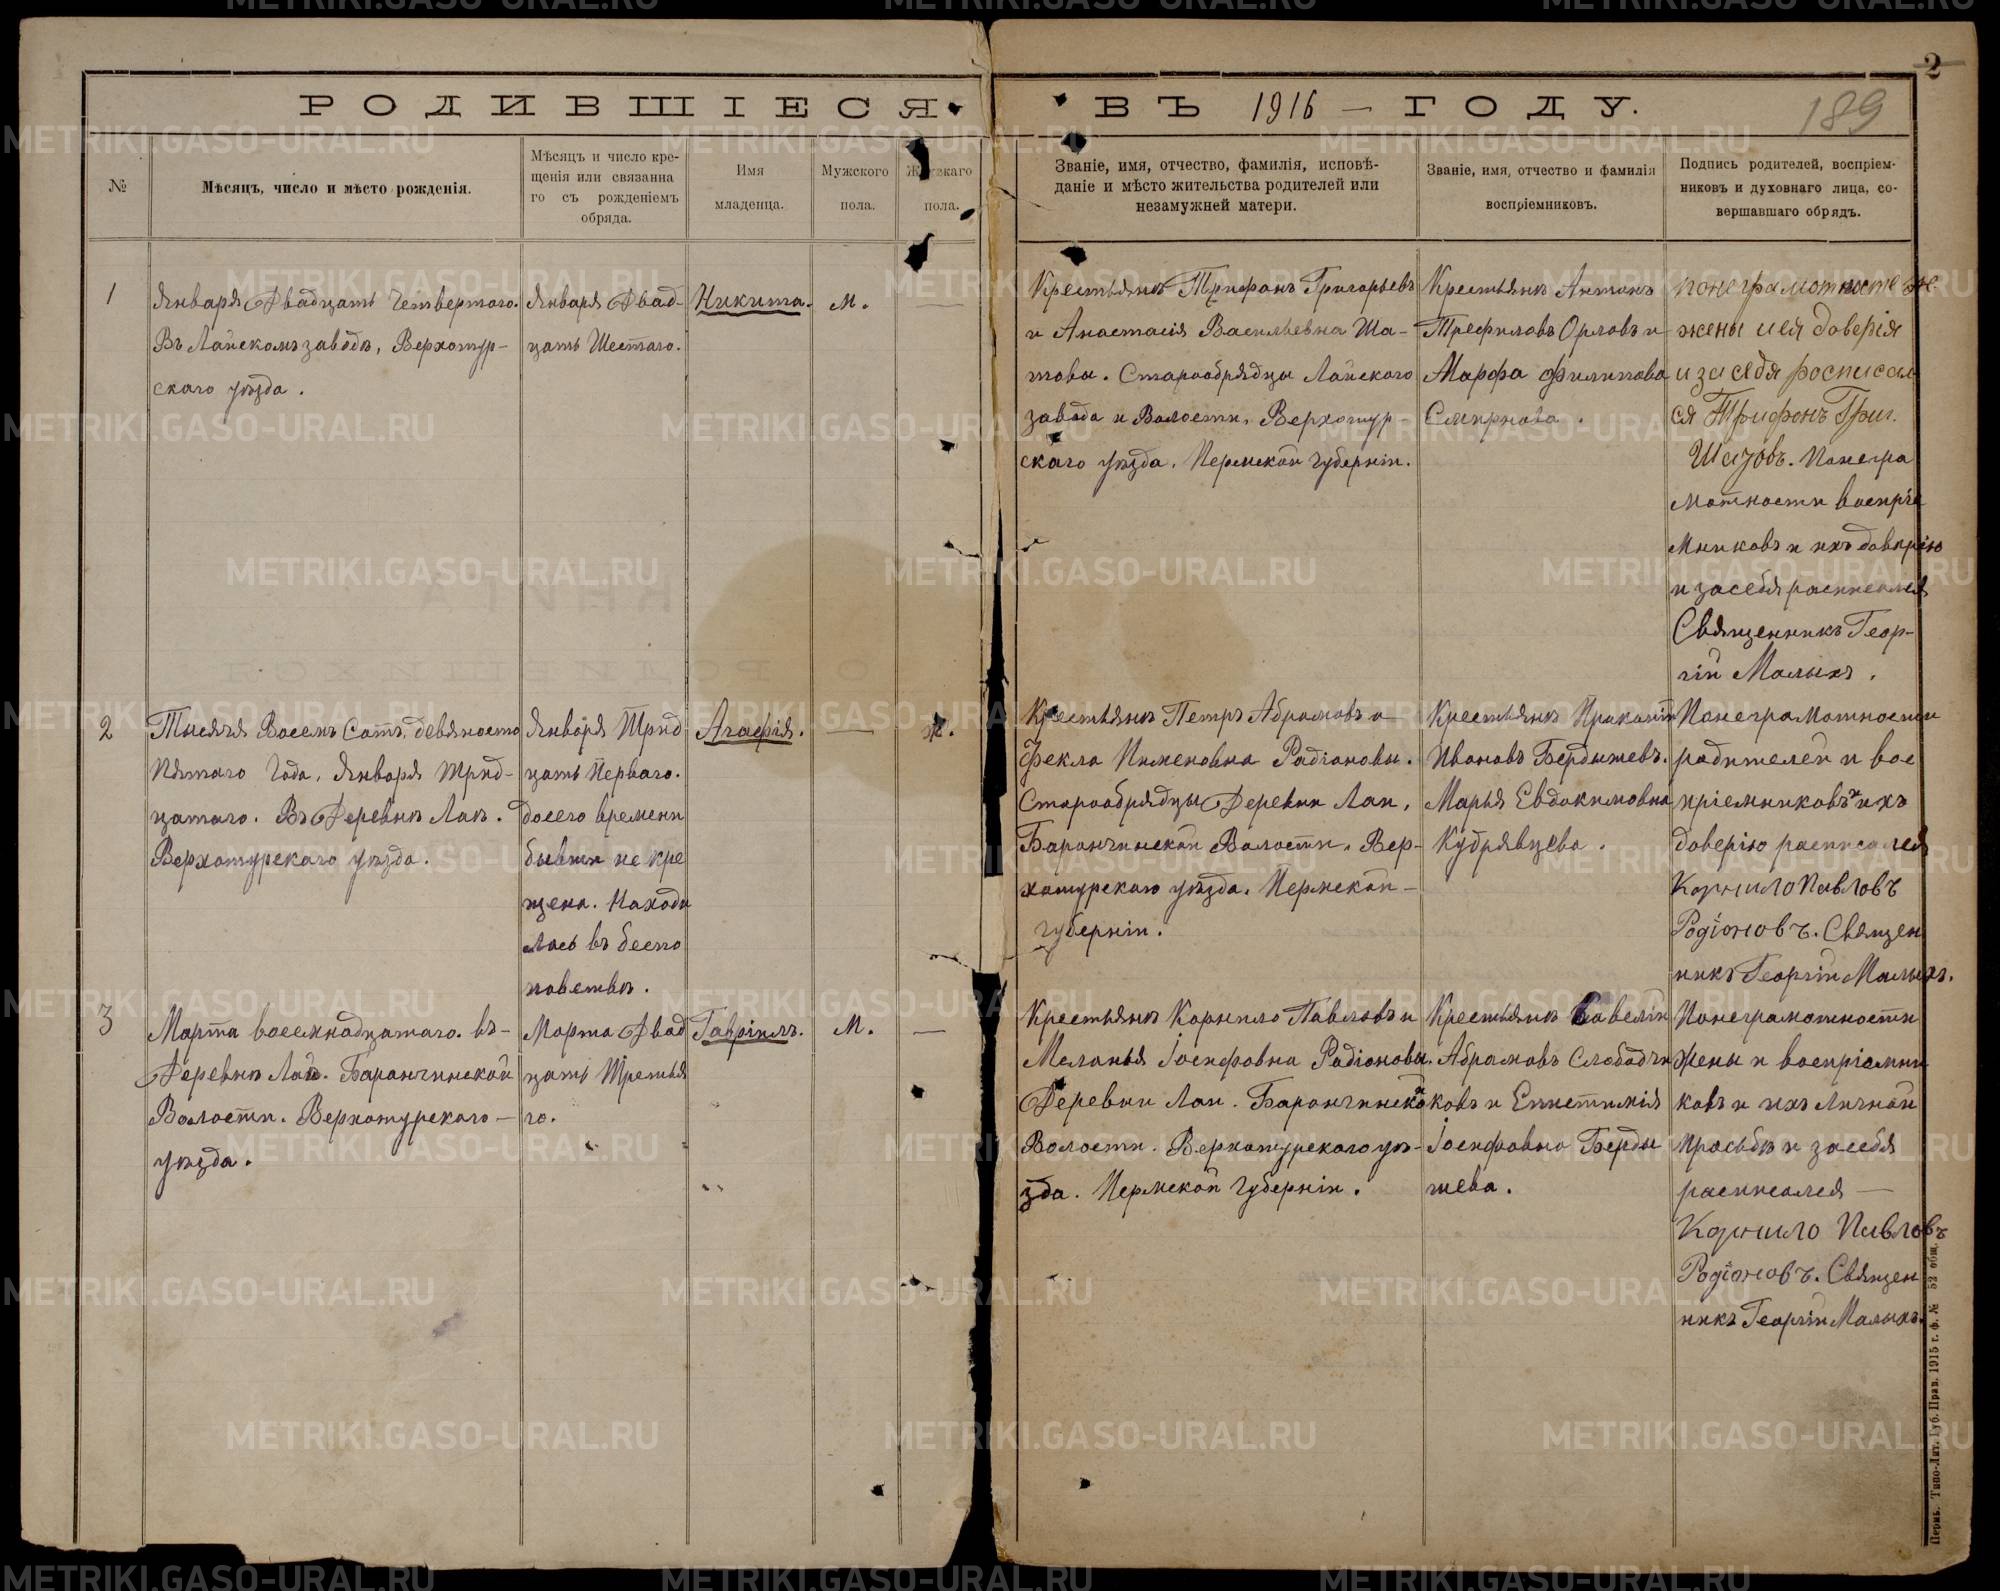 2
РОДИВШIЕСЯ ВЪ 1916 — ГОДУ.
189
№
Мѣсяцъ, число и мѣсто рожденія.
Мѣсяцъ и число кре-
щенія или связанна
го съ рожденіемъ
обряда.
Имя
младенца.
Мужского
пола.
Женскаго
пола.
Званіе, имя, отчество, фамилія, исповѣ-
даніе и мѣсто жительства родителей или
незамужней матери.
Званіе, имя, отчество и фамилія
воспріемниковъ.
Подпись родителей, воспріем-
никовъ и духовнаго лица, со-
вершавшаго обрядъ.
1
Января Двадцать Четвертаго.
Въ Лайскомъ заводѣ, Верхотур-
скаго уѣзда.
Января Двад-
цать Шестаго.
Никита.
м.
Крестьянѣ Трифонъ Григорьевъ
и Анастасія Васильевна Ша-
товы. Старообрядцы Лайскаго
завода и Волости, Верхотур-
скаго уѣзда. Пермской Губерніи.
Крестьянѣ Антонъ
Трефиловъ Орловъ и
Марфа Филипова
Смирнова.
жены иея доверія
иза себя росписал
ся Трифонъ Григ.
Шатовъ. Понегра
мотности воспріе
мниковъ и ихъ довѣрію
и засебя расписался
Священникъ Геор-
гій Малыхъ.
2
Тысяча Восемь Сотъ, девяносто
Пятаго Года, Января Трид-
цатаго. Въ Деревнѣ Лаѣ.
Верхотурскаго уѣзда.
Января Трид
цать Перваго.
досего времени
бывши не кре
щена. Находи
лась въ беспо
повствѣ.
Агафія.
—
ж.
Крестьянѣ Петръ Абрамовъ и
Фекла Пименовна Радіоновы.
Старообрядцы Деревни Лаи,
Баранчинской Волости, Вер-
хотурскаго уѣзда. Пермской-
губерніи.
Ивановъ Бердышевъ.
Марья Евдокимовна
Кудрявцева.
Понеграмотности
радителей и вос
пріемниковъ и ихъ
доверію расписался
Корнило Павловъ
Родіоновъ. Священ
никъ Георгій Малыхъ.
3
Марта восемнадцатаго. въ-
Деревнѣ Лаѣ. Баранчинской
Волости. Верхотурскаго —
уѣзда.
Марта Двад
цать Третья
го.
Гавріилъ.
М.
—
Крестьянѣ Корнило Павловъ и
Меланья Іосифовна Радіоновы.
Деревни Лаи. Баранчинской
Волости. Верхотурскаго уѣ-
зда. Пермской Губерніи.
Крестьянѣ Савелій
Абрамовъ Слободчи
ковъ и Епистимія
Іосифовна Берды
шева.
Понеграмотности
жены и воспріемни
ковъ и ихъ личной
просьбѣ и засебя
расписался —
Корнило Павловъ
Родіоновъ. Священ
никъ Георгій Малыхъ.
Пермь. Типо-Лит. Губ. Прав. 1915 г. ф. № 52 общ.